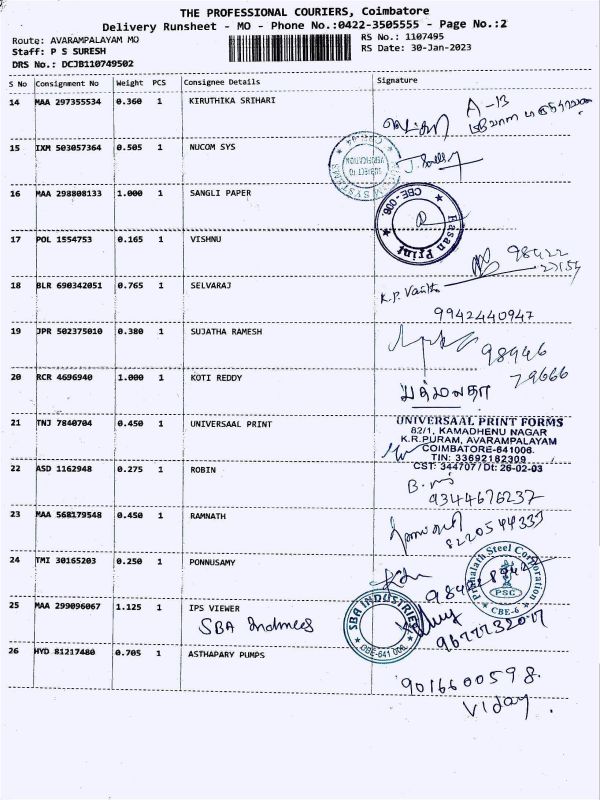 THE PROFESSIONAL COURIERS, Coimbatore
Delivery Runsheet - MO - Phone No.:0422-3505555 - Page No.:2
Route: AVARAMPALAYAM MO
Staff: P S SURESH
DRS No.: DCJB110749502
RS No.: 1107495
RS Date: 30-Jan-2023
S No Consignment No Weight PCS Consignee Details Signature
14 MAA 297355534 0.360 1 KIRUTHIKA SRIHARI
A-13
15 IXM 503057364 0.505 1 NUCOM SYS
SUBJECT TO VERIFICATION
16 MAA 298808133 1.000 1 SANGLI PAPER
CBE-006.
Easan Print
17 POL 1554753 0.165 1 VISHNU
98422
18 BLR 690342051 0.765 1 SELVARAJ
K.P. Vanitha
9942440947
19 JPR 502375010 0.380 1 SUJATHA RAMESH
98446
79666
20 RCR 4696940 1.000 1 KOTI REDDY
பத்மலதா
21 TNJ 7840704 0.450 1 UNIVERSAAL PRINT
UNIVERSAAL PRINT FORMS
82/1, KAMADHENU NAGAR
K.R.PURAM, AVARAMPALAYAM
COIMBATORE-641006.
TIN: 33692182309
CST: 344707 / Dt: 26-02-03
22 ASD 1162948 0.275 1 ROBIN
9344676237
23 MAA 568179548 0.450 1 RAMNATH
8220544333
24 TMI 30165203 0.250 1 PONNUSAMY
Steel Corporation
PSC
CBE-6
25 MAA 299096067 1.125 1 IPS VIEWER
SBA INDUSTRIES
CBE-641 006.
9677732077
26 HYD 81217480 0.705 1 ASTHAPARY PUMPS
9016600598.
Viday.